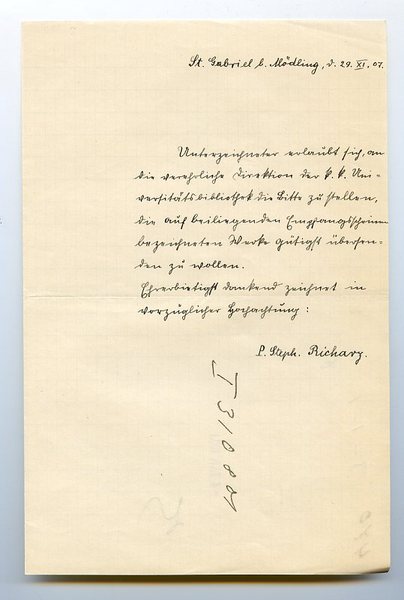 St. Gabriel b. Mödling, d. 29. XI. 07.
Unterzeichneter erlaubt sich, an
die verehrliche Direktion der k. k. Uni-
versitätsbibliothek die Bitte zu stellen,
die auf beiliegenden Empfangsscheinen
bezeichneten Werke gütigst übersen-
den zu wollen.
Ehrerbietigst dankend zeichnet in
vorzüglicher Hochachtung:
P. Steph. Richarz.
I 31089